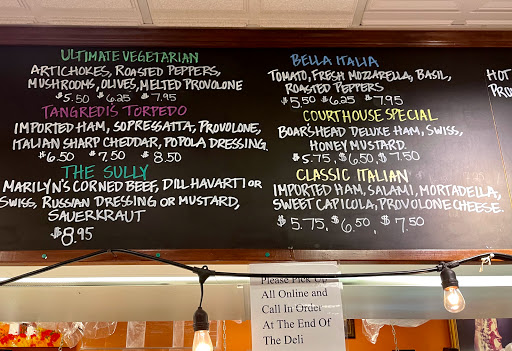 ULTIMATE VEGETARIAN
ARTICHOKES, ROASTED PEPPERS,
MUSHROOMS, OLIVES, MELTED PROVOLONE
$5.50 $6.25 $7.95
TANGREDI'S TORPEDO
IMPORTED HAM, SOPRESSATTA, PROVOLONE,
ITALIAN SHARP CHEDDAR, POPOLA DRESSING.
$6.50 $7.50 $8.50
THE SULLY
MARILYN'S CORNED BEEF, DILL HAVARTI OR
SWISS, RUSSIAN DRESSING OR MUSTARD,
SAUERKRAUT
$8.95
BELLA ITALIA
TOMATO, FRESH MOZZARELLA, BASIL,
ROASTED PEPPERS
$5.50 $6.25 $7.95
COURTHOUSE SPECIAL
BOARSHEAD DELUXE HAM, SWISS,
HONEY MUSTARD.
$5.75, $6.50, $7.50
CLASSIC ITALIAN
IMPORTED HAM, SALAMI, MORTADELLA,
SWEET CAPICOLA, PROVOLONE CHEESE.
$5.75, $6.50, $7.50
HOT
PRO
Please Pick Up
All Online and
Call In Order
At The End of
The Deli